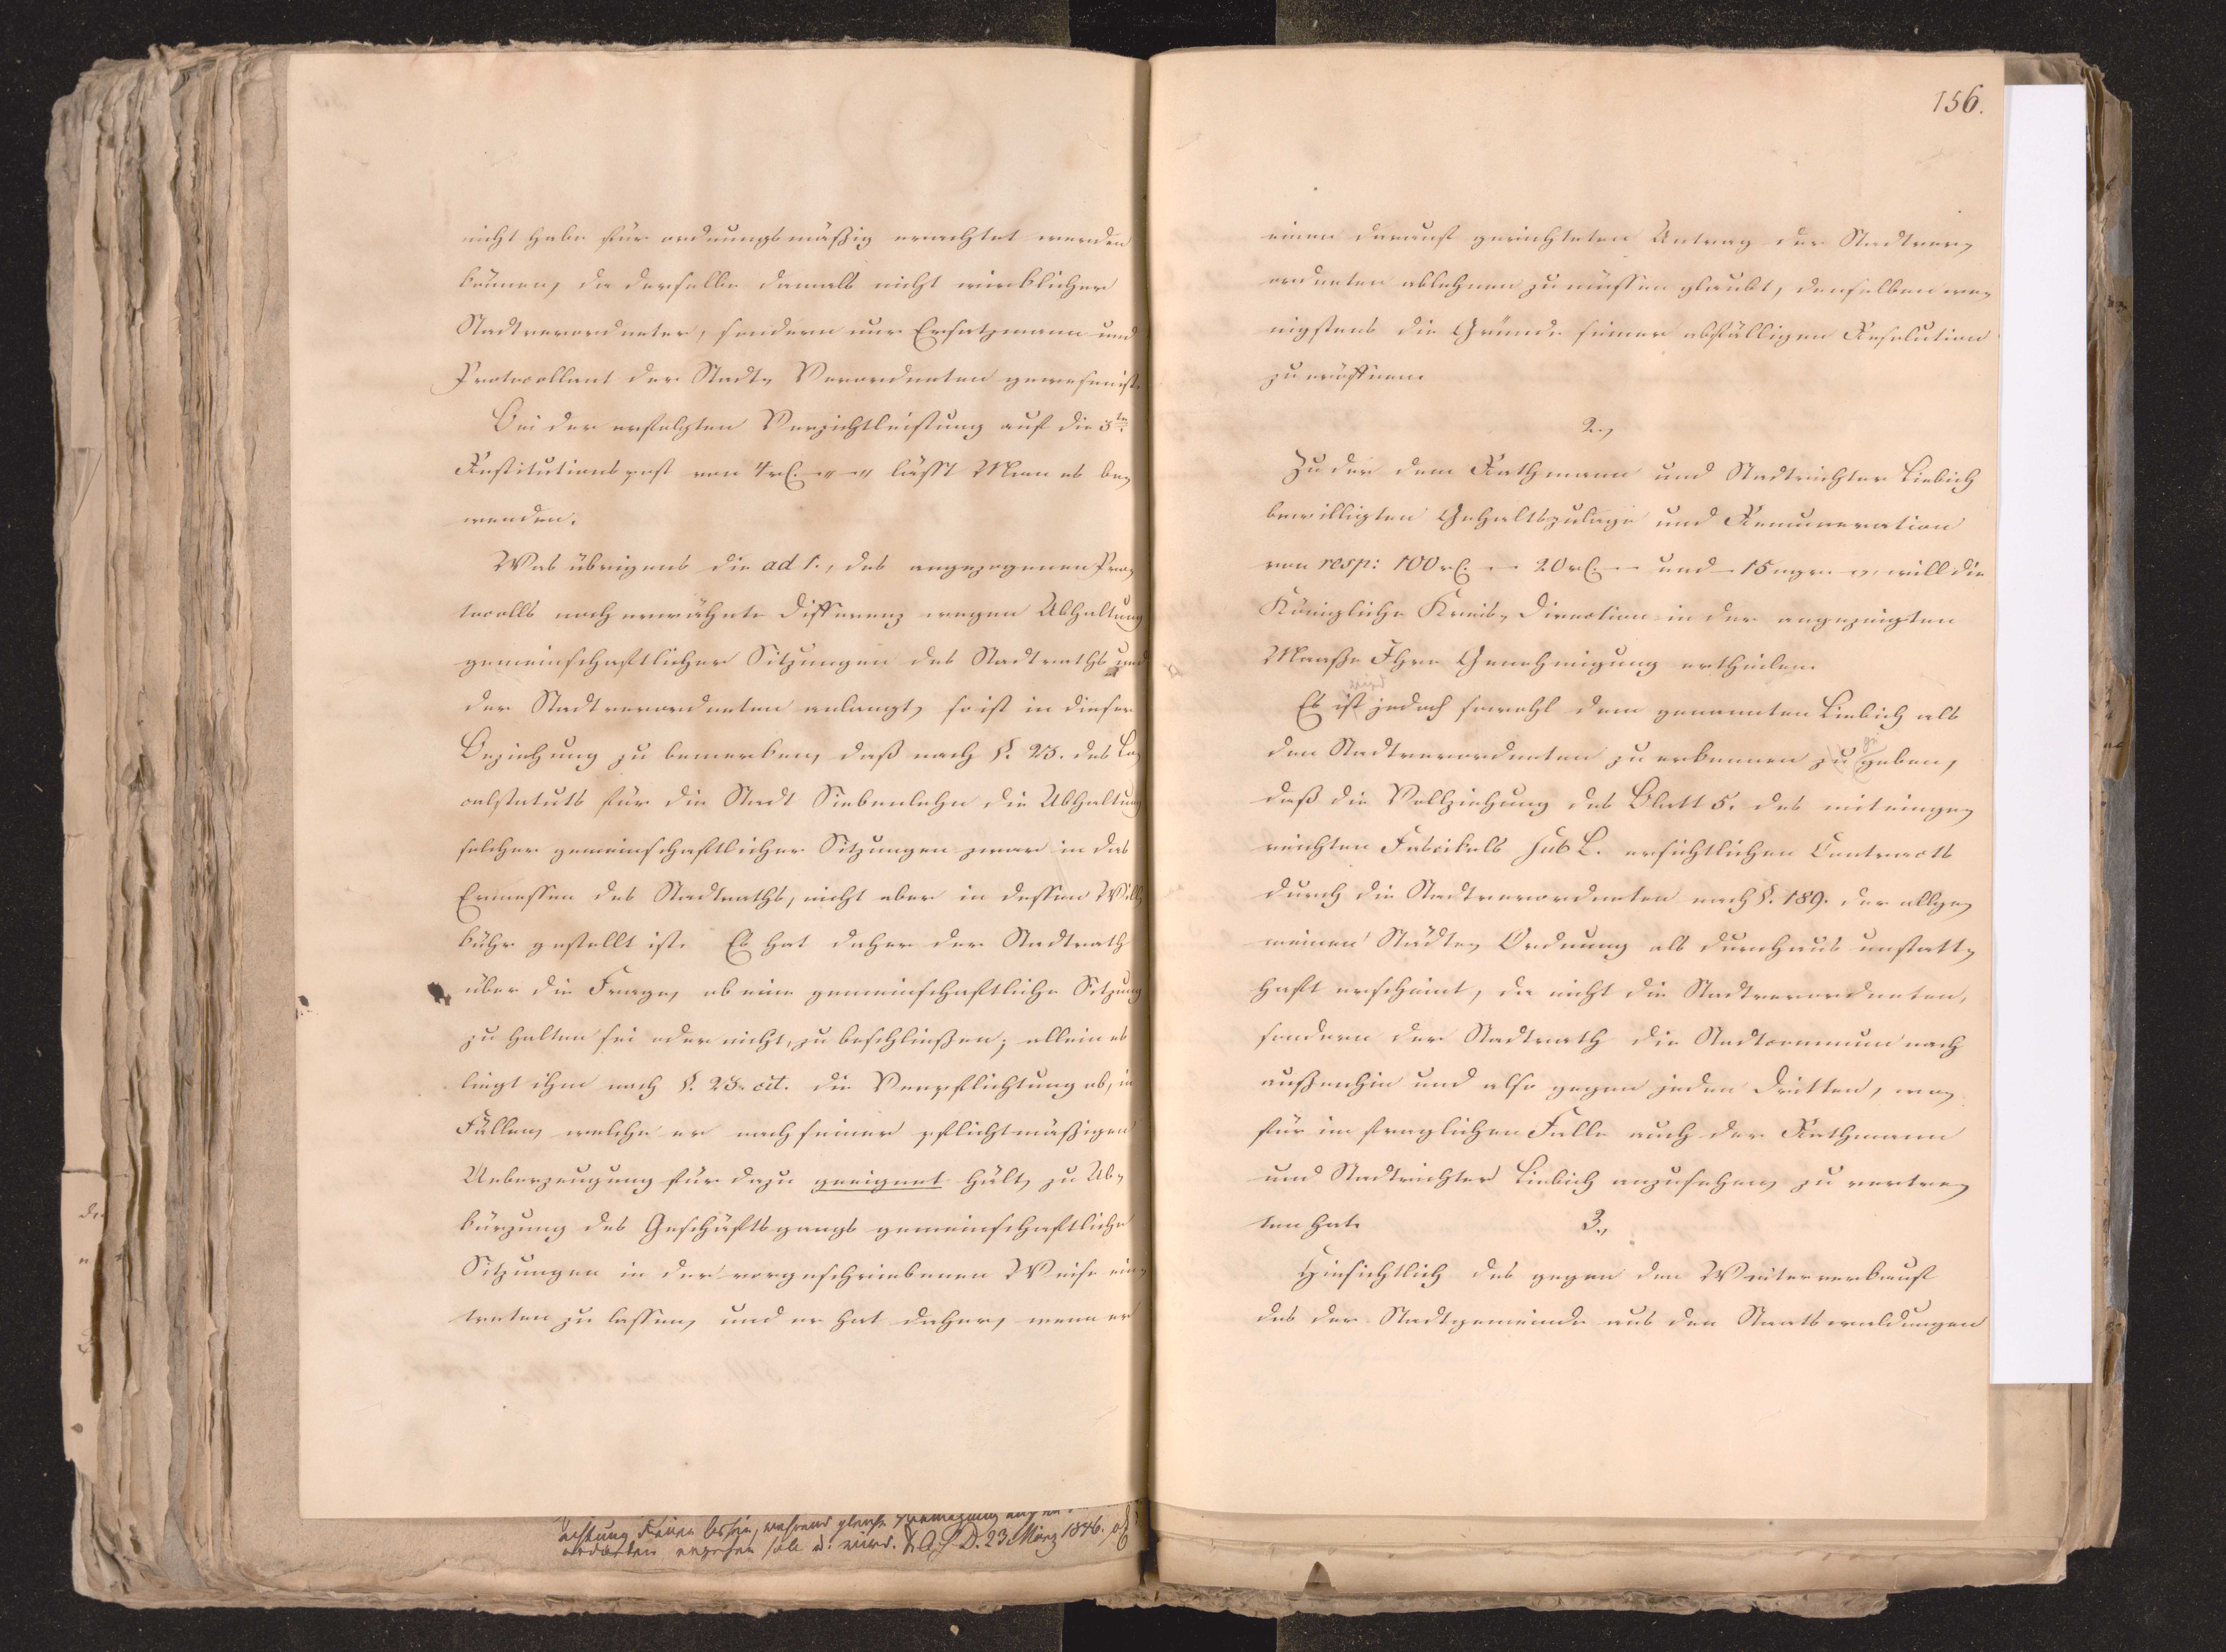 nicht habe für ordnungsmäßig erachtet werden
können, da derselbe damals nicht wirklicher
Stadtverordneter, sondern nur Ersatzmann und
Protocollant der Stadt- Verordneten gewesen ist.
Bei der erfolgten Verzichtleistung auf die 3te
Restitutionspost von 4 rl. -- -- läßt Man es be-
wenden.
Was übrigens die ad 1., des angezogenen Pro-
tocolls noch erwähnte Differenz wegen Abhaltung
gemeinschaftlicher Sitzungen des Stadtraths und
der Stadtverordneten anlangt, so ist in dieser
Beziehung zu bemerken, daß nach §. 23. des Lo-
calstatuts für die Stadt Siebenlehn die Abhaltung
solcher gemeinschaftlicher Sitzungen zwar in das
Ermessen des Stadtraths, nicht aber in dessen Will-
kühr gestellt ist. Es hat daher der Stadtrath
über die Frage, ob eine gemeinschaftliche Sitzung
zu halten sei oder nicht, zu beschließen; allein es
liegt ihm nach §. 23. cit. die Verpflichtung ob, in
Fällen, welche er nach seiner pflichtmäßigen
Ueberzeugung für dazu geeignet hält, zu Ab-
kürzung des Geschäftsgangs gemeinschaftliche
Sitzungen in der vorgeschriebenen Weise ein-
treten zu lassen, und er hat daher, wenn er
D. 23 März 1846.
156.
einen darauf gerichteten Antrag der Stadtver-
ordneten ablehnen zu müssen glaubt, denselben we-
nigstens die Gründe seiner abfälligen Resolution
zu eröffnen.
2.,
Zu der dem Rathmann und Stadtrichter Liebich
bewilligten Gehaltszulage und Remuneration
von resp: 100 rl. -- 20 rl. -- und - 15 ngr. -, will die
Königliche Kreis- Direction in der angezeigten
Maaße Ihre Genehmigung ertheilen.
wird
Es ist jedoch sowohl dem genannten Liebich als
den Stadtverordneten zu erkennen zu geben,
daß die Vollziehung des Blatt 5. des miteinge-
reichten Fascikels sub L. ersichtlichen Contracts
durch die Stadtverordneten nach §. 189. der allge-
meinen Städte- Ordnung als durchaus unstatt-
haft erscheint, da nicht die Stadtverordneten,
sondern der Stadtrath die Stadtcommun nach
außenhin und also gegen jeden Dritten, wo-
für im fraglichen Falle auch der Rathmann
und Stadtrichter Liebich anzusehen, zu vertre-
ten hat.
3.,
Hinsichtlich des gegen den Weiterverkauf
des der Stadtgemeinde aus den Staatswaldungen